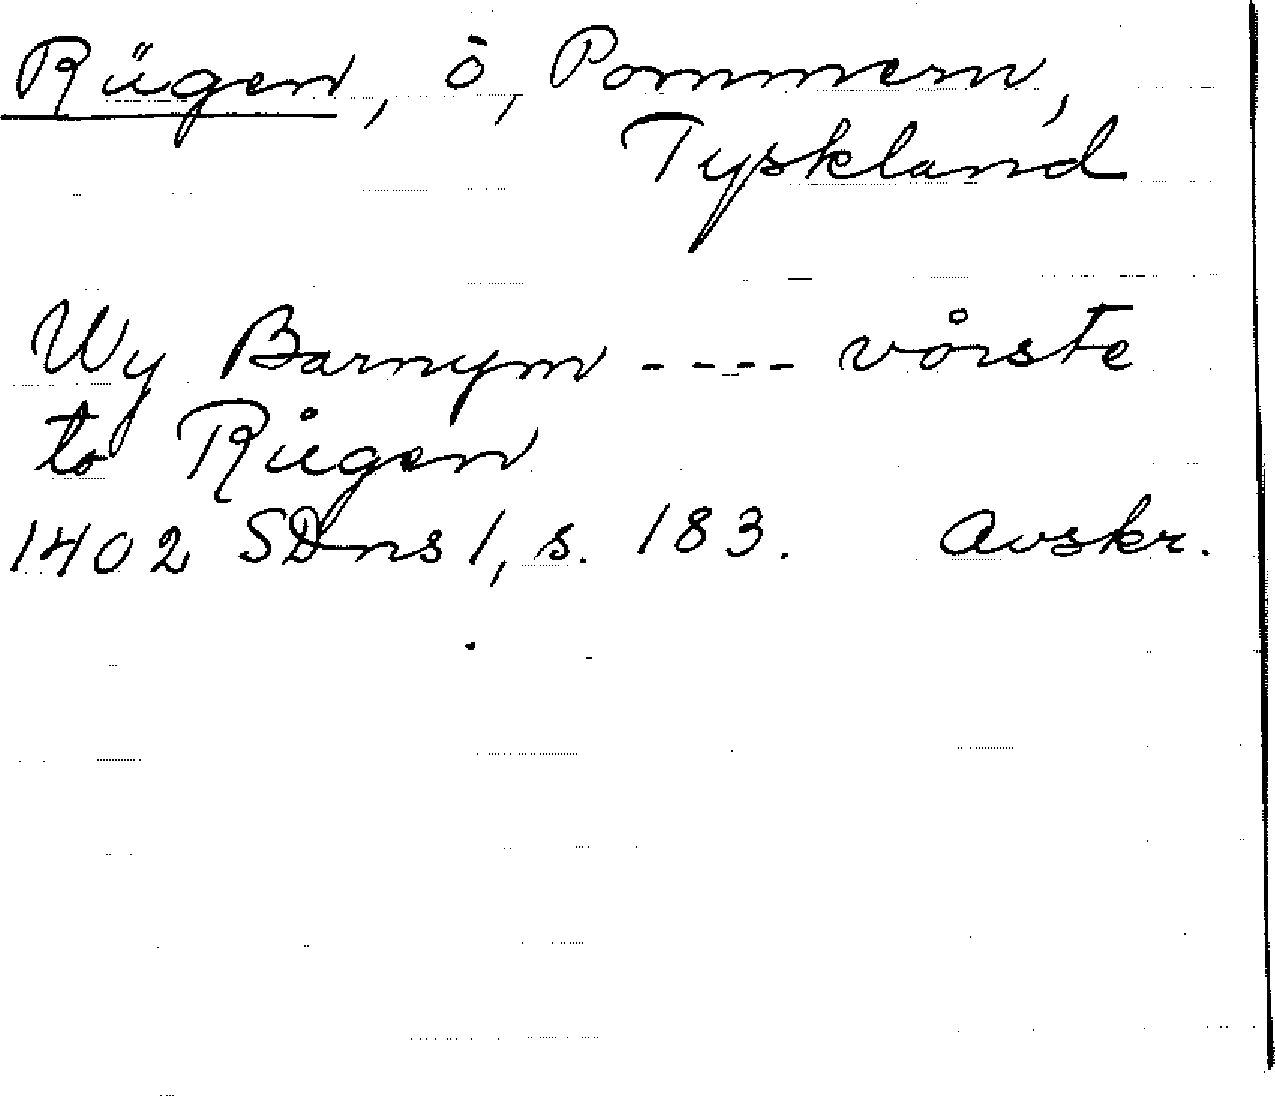 Rügen, ö, Pommern,
Tyskland
Wy Barnym ---- vo̊rste
to Růgen
1402 SDns 1, s. 183. Avskr.